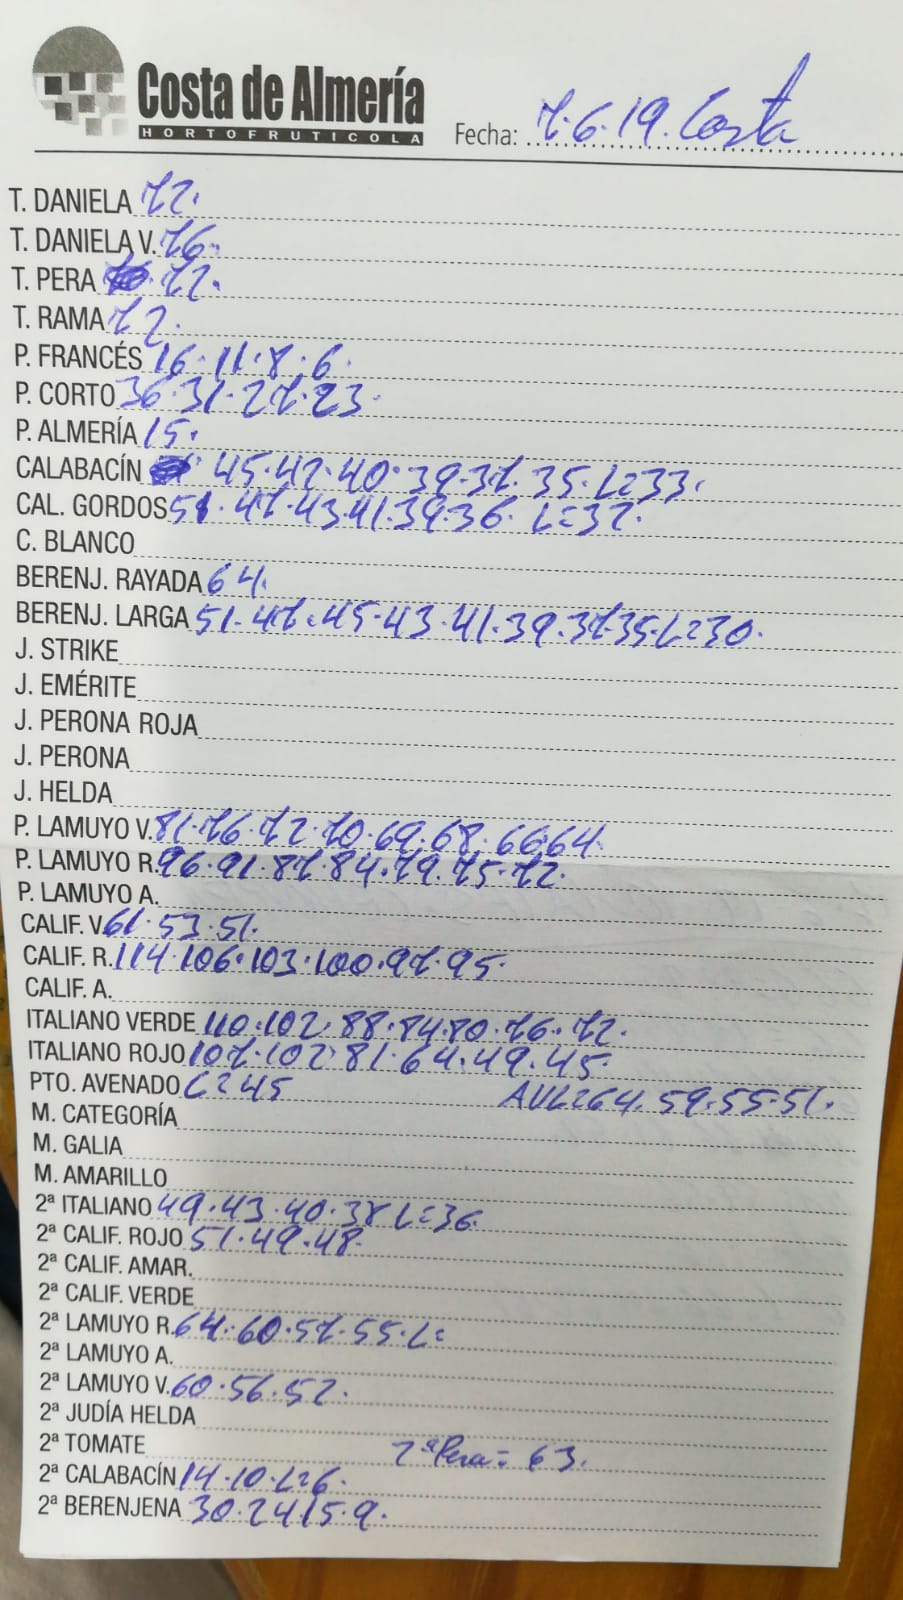 Costa de Almería
HORTOFRUTICOLA
Fecha: 7.6.19. Costa
T. DANIELA 72.
T. DANIELA V. 76.
T. PERA 72.
T. RAMA 72.
P. FRANCÉS 16.11.8.6.
P. CORTO 36.31.27.23.
P. ALMERÍA 15.
CALABACÍN 45.42.40.39.37.35.L=33.
CAL. GORDOS 51.47.43.41.39.36. L=32.
C. BLANCO
BERENJ. RAYADA 64.
BERENJ. LARGA 51.47.45.43.41.39.37.35.L=30.
J. STRIKE
J. EMÉRITE
J. PERONA ROJA
J. PERONA
J. HELDA
P. LAMUYO V. 81.76.72.70.69.68.66.64.
P. LAMUYO R. 96.91.87.84.79.75.72.
P. LAMUYO A.
CALIF. V. 61.53.51.
CALIF. R. 114.106.103.100.97.95.
CALIF. A.
ITALIANO VERDE 110.102.88.84.80.76.72.
ITALIANO ROJO 107.102.81.64.49.45.
PTO. AVENADO C=45 AVL=64.59.55.51.
M. CATEGORÍA
M. GALIA
M. AMARILLO
2ª ITALIANO 49.43.40.38 L=36.
2ª CALIF. ROJO 51.49.48.
2ª CALIF. AMAR.
2ª CALIF. VERDE
2ª LAMUYO R. 64.60.57.55.L=
2ª LAMUYO A.
2ª LAMUYO V. 60.56.52.
2ª JUDÍA HELDA
2ª TOMATE 2ª Pera = 63.
2ª CALABACÍN 14.10.L=6.
2ª BERENJENA 30.24.15.9.